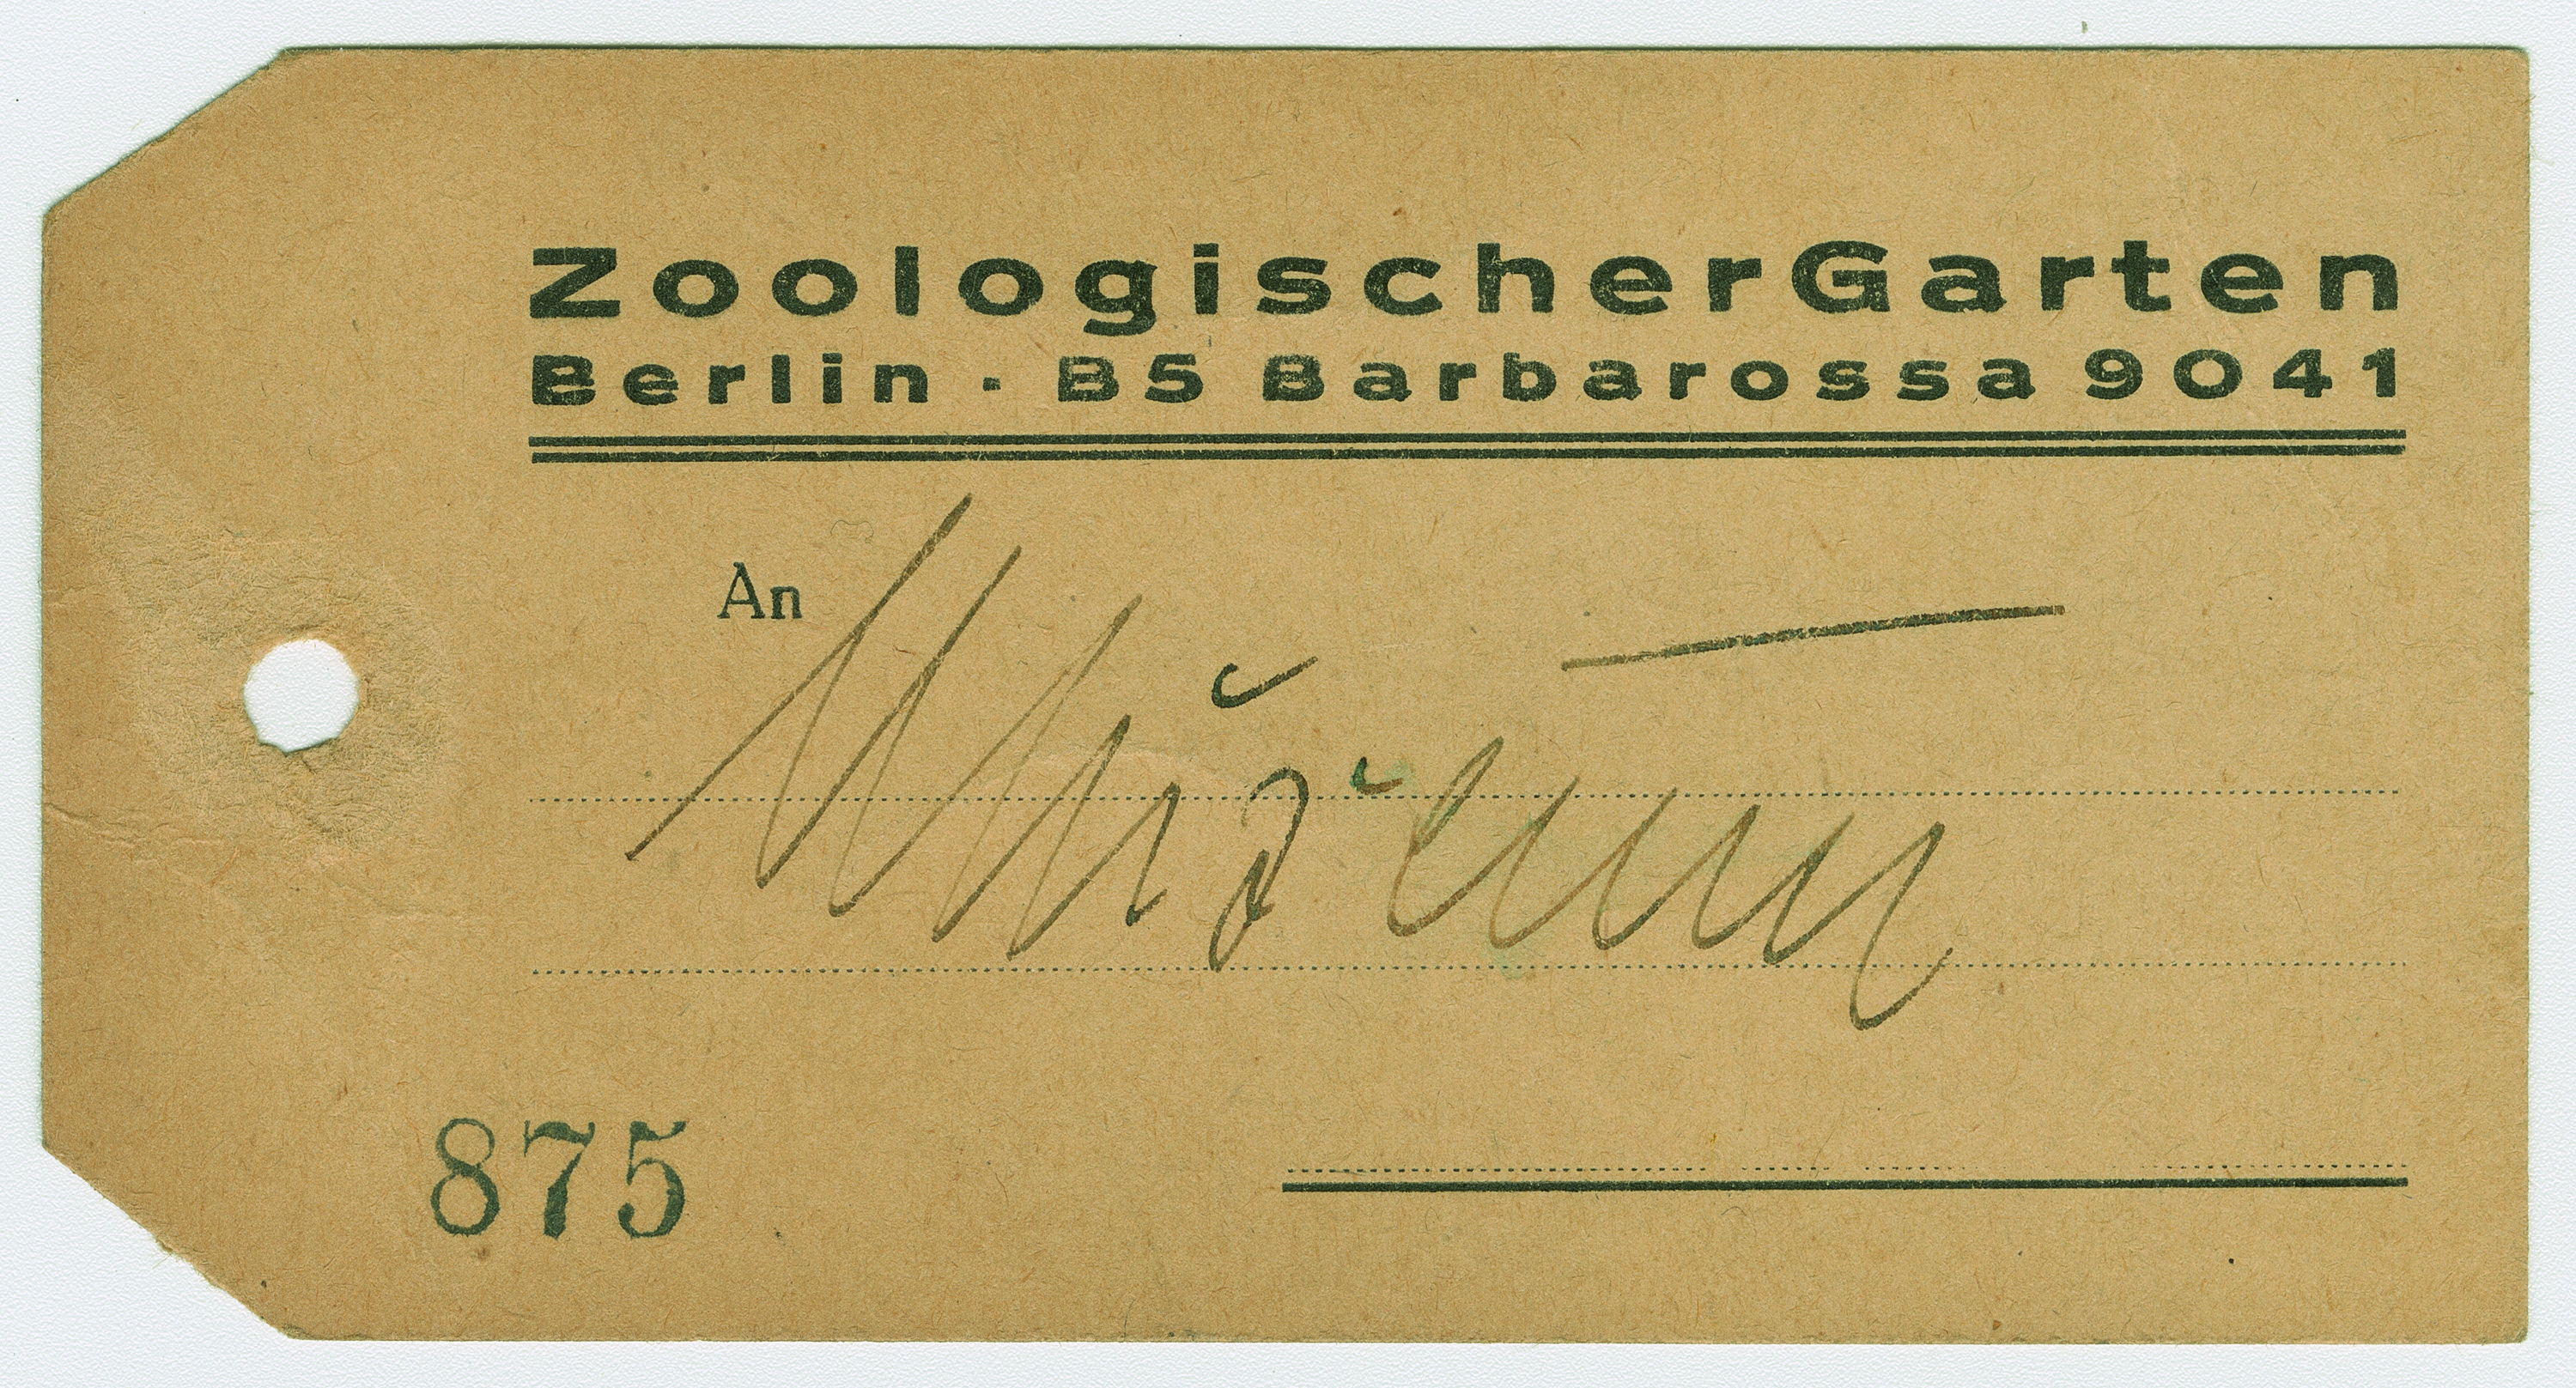 Zoologischer Garten
Berlin · B5 Barbarossa 9041
An
875